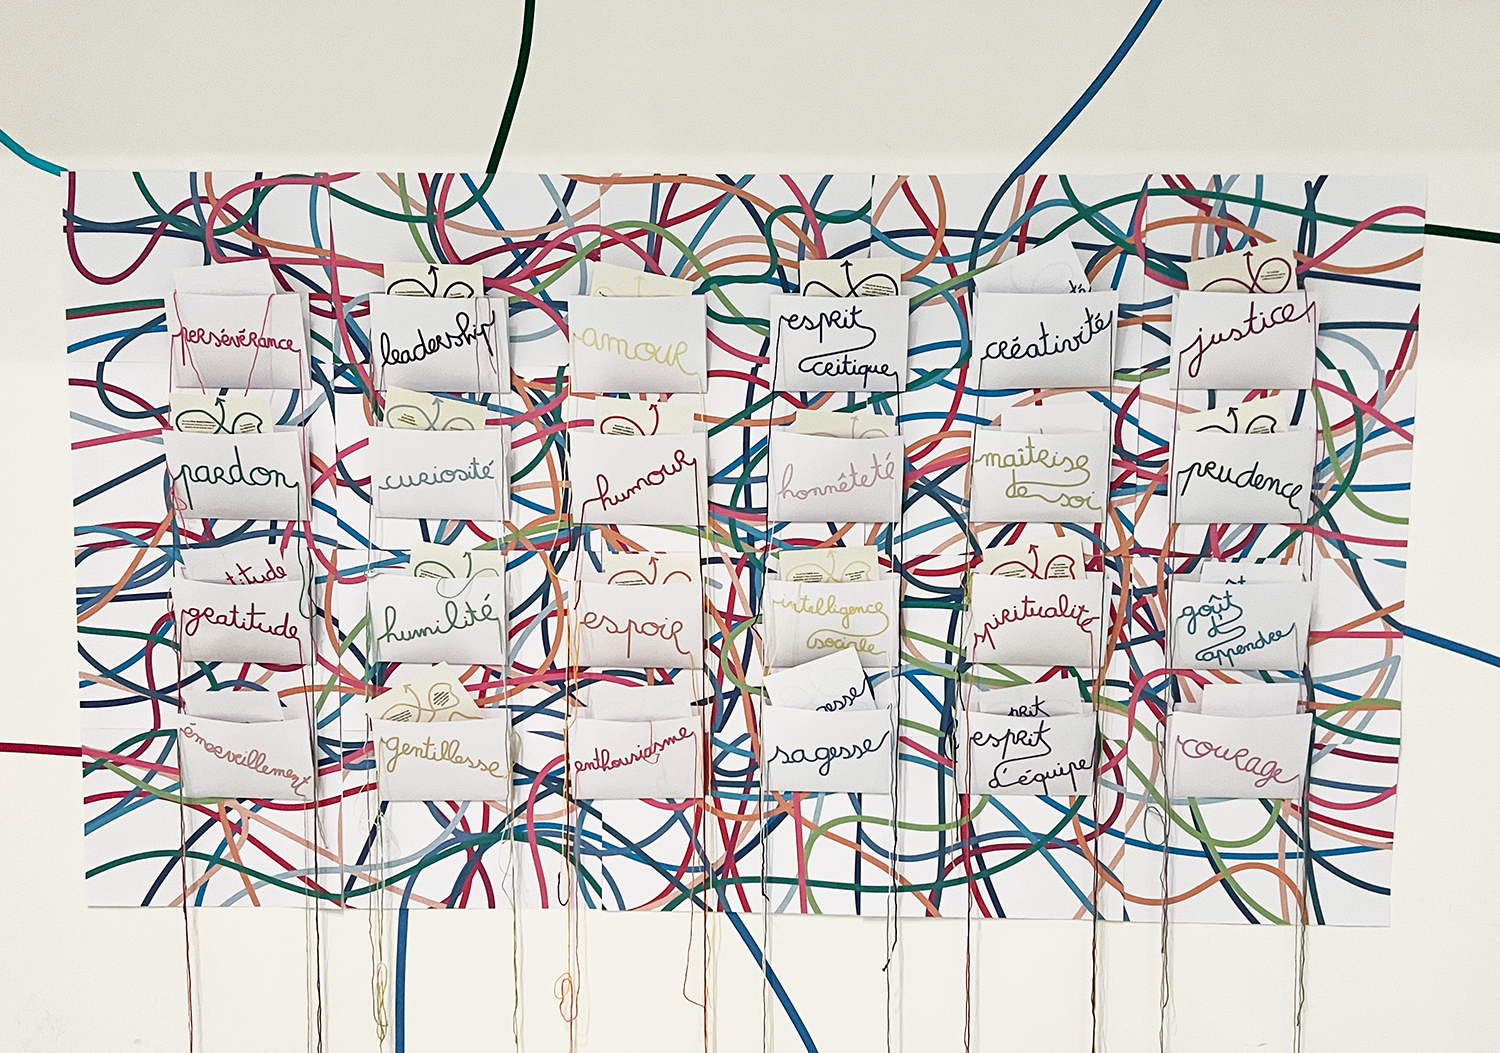 persévérance
leadership
amour
esprit
critique
créativité
justice
pardon
curiosité
humour
honnêteté
maîtrise
de soi
prudence
titude
gratitude
humilité
espoir
intelligence
sociale
spiritualité
goût
d'
apprendre
émerveillement
gentillesse
enthousiasme
esse
sagesse
prit
esprit
d'équipe
courage